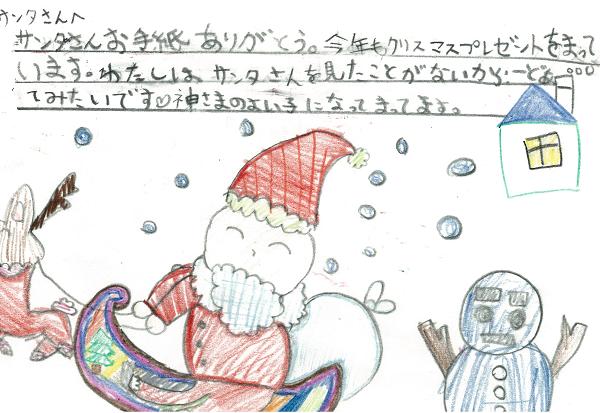 サンタさんへ
サンタさんお手紙ありがとう。今年もクリスマスプレゼントをまって
います。わたしは、サンタさんを見たことがないから一どあっ
てみたいです♡神さまのよい子になってまってます。